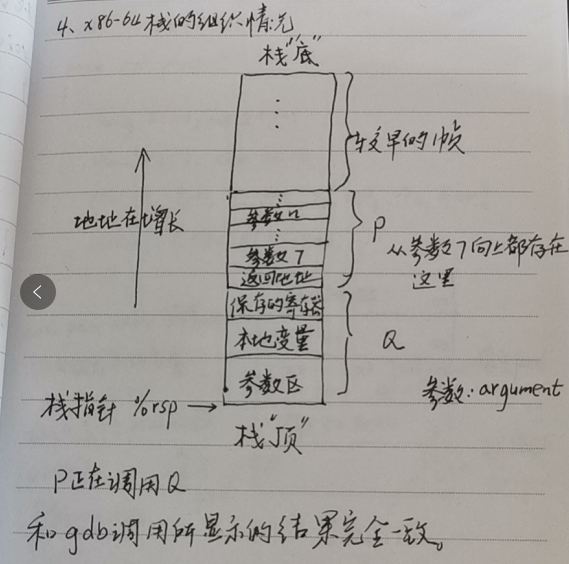 4、x86-64栈的组织情况
栈“底”
⋮
较早的帧
地址在增长
⋮
参数n
⋮
参数7
返回地址
P
从参数7向上都存在
这里
保存的寄存器
本地变量
参数区
Q
栈指针 %rsp →
参数: argument
栈“顶”
P正在调用Q
和gdb调用所显示的结果完全一致。